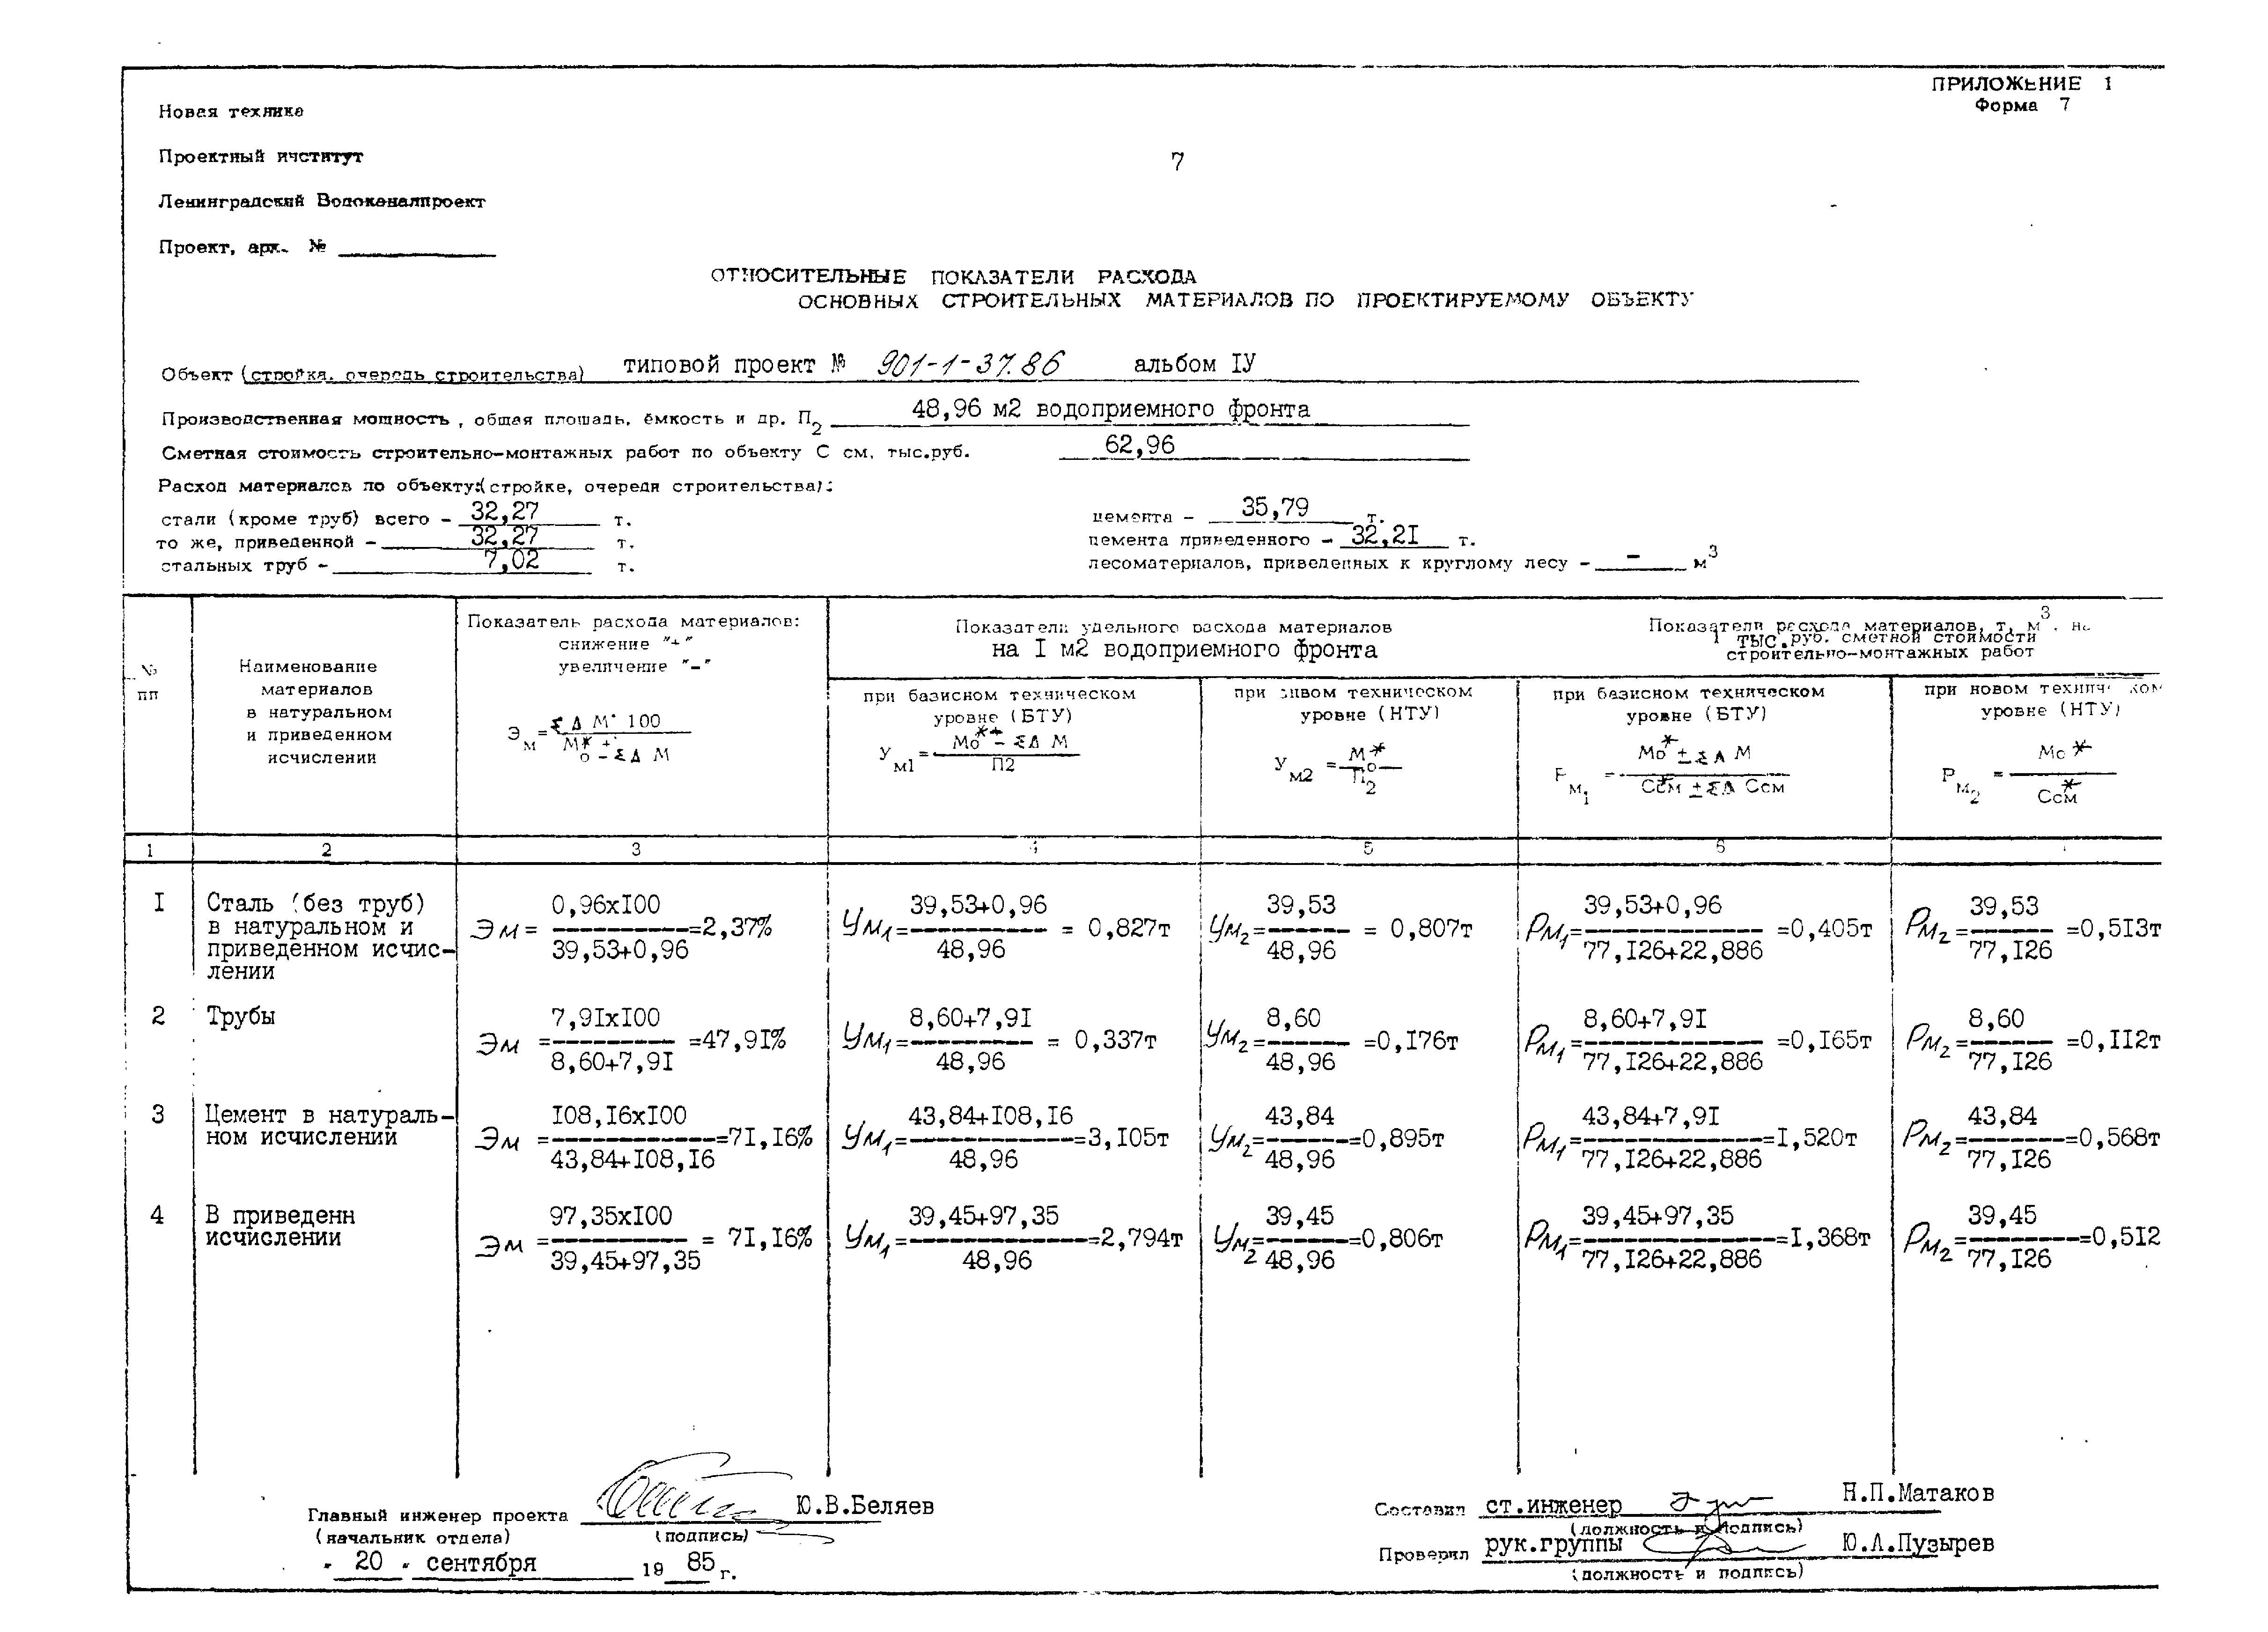 ПРИЛОЖЕНИЕ 1
Форма 7
Новая техника
Проектный институт
7
Ленинградский Водоканалпроект
Проект, арх. №
ОТНОСИТЕЛЬНЫЕ ПОКАЗАТЕЛИ РАСХОДА
ОСНОВНЫХ СТРОИТЕЛЬНЫХ МАТЕРИАЛОВ ПО ПРОЕКТИРУЕМОМУ ОБЪЕКТУ
Объект (стройка, очередь строительства) типовой проект № 901-1-37.86 альбом IУ
Производственная мощность, общая площадь, ёмкость и др. П2 48,96 м2 водоприемного фронта
Сметная стоимость строительно-монтажных работ по объекту С см, тыс.руб. 62,96
Расход материалов по объекту:(стройке, очереди строительства):
стали (кроме труб) всего – 32,27 т.
то же, приведенной – 32,27 т.
стальных труб – 7,02 т.
цемента – 35,79 т.
цемента приведенного – 32,2I т.
лесоматериалов, приведенных к круглому лесу – – м3
№
пп
Наименование
материалов
в натуральном
и приведенном
исчислении
Показатель расхода материалов:
снижение "+"
увеличение "–"
Эм = ΣΔ М· 100
М*о ± ΣΔ М
Показатели удельного расхода материалов
на I м2 водоприемного фронта
при базисном техническом
уровне (БТУ)
Ум1 = Мо* ± ΣΔ М
П2
при новом техническом
уровне (НТУ)
Ум2 = Мо*
П2
Показатели расхода материалов, т, м3, на
1 тыс.руб. сметной стоимости
строительно-монтажных работ
при базисном техническом
уровне (БТУ)
Рм1 = Мо* ± ΣΔ М
Ссм* ± ΣΔ Ссм
при новом техническом
уровне (НТУ)
Рм2 = Мо*
Ссм*
1 2 3 4 5 6
I
Сталь (без труб)
в натуральном и
приведенном исчис–
лении
0,96xI00
Эм= ---------- =2,37%
39,53+0,96
39,53+0,96
Ум1= ---------- = 0,827т
48,96
39,53
Ум2= ------ = 0,807т
48,96
39,53+0,96
Рм1= ------------- =0,405т
77,I26+22,886
39,53
Рм2= ------ =0,5I3т
77,I26
2
Трубы
7,9IxI00
Эм = --------- =47,9I%
8,60+7,9I
8,60+7,9I
Ум1= --------- = 0,337т
48,96
8,60
Ум2= ------ =0,I76т
48,96
8,60+7,9I
Рм1= ------------- =0,I65т
77,I26+22,886
8,60
Рм2= ------ =0,II2т
77,I26
3
Цемент в натураль–
ном исчислении
I08,I6xI00
Эм = ------------ =7I,I6%
43,84+I08,I6
43,84+I08,I6
Ум1= ------------ =3,I05т
48,96
43,84
Ум2= ------ =0,895т
48,96
43,84+7,9I
Рм1= ------------- =I,520т
77,I26+22,886
43,84
Рм2= ------- =0,568т
77,I26
4
В приведенн
исчислении
97,35xI00
Эм = ----------- = 7I,I6%
39,45+97,35
39,45+97,35
Ум1= ------------- =2,794т
48,96
39,45
Ум2= ------ =0,806т
48,96
39,45+97,35
Рм1= -------------- =I,368т
77,I26+22,886
39,45
Рм2= -------- =0,5I2
77,I26
Главный инженер проекта Ю.В.Беляев
(начальник отдела) (подпись)
" 20 " сентября 19 85 г.
Составил ст.инженер Н.П.Матаков
(должность и подпись)
Проверил рук.группы Ю.А.Пузырев
(должность и подпись)